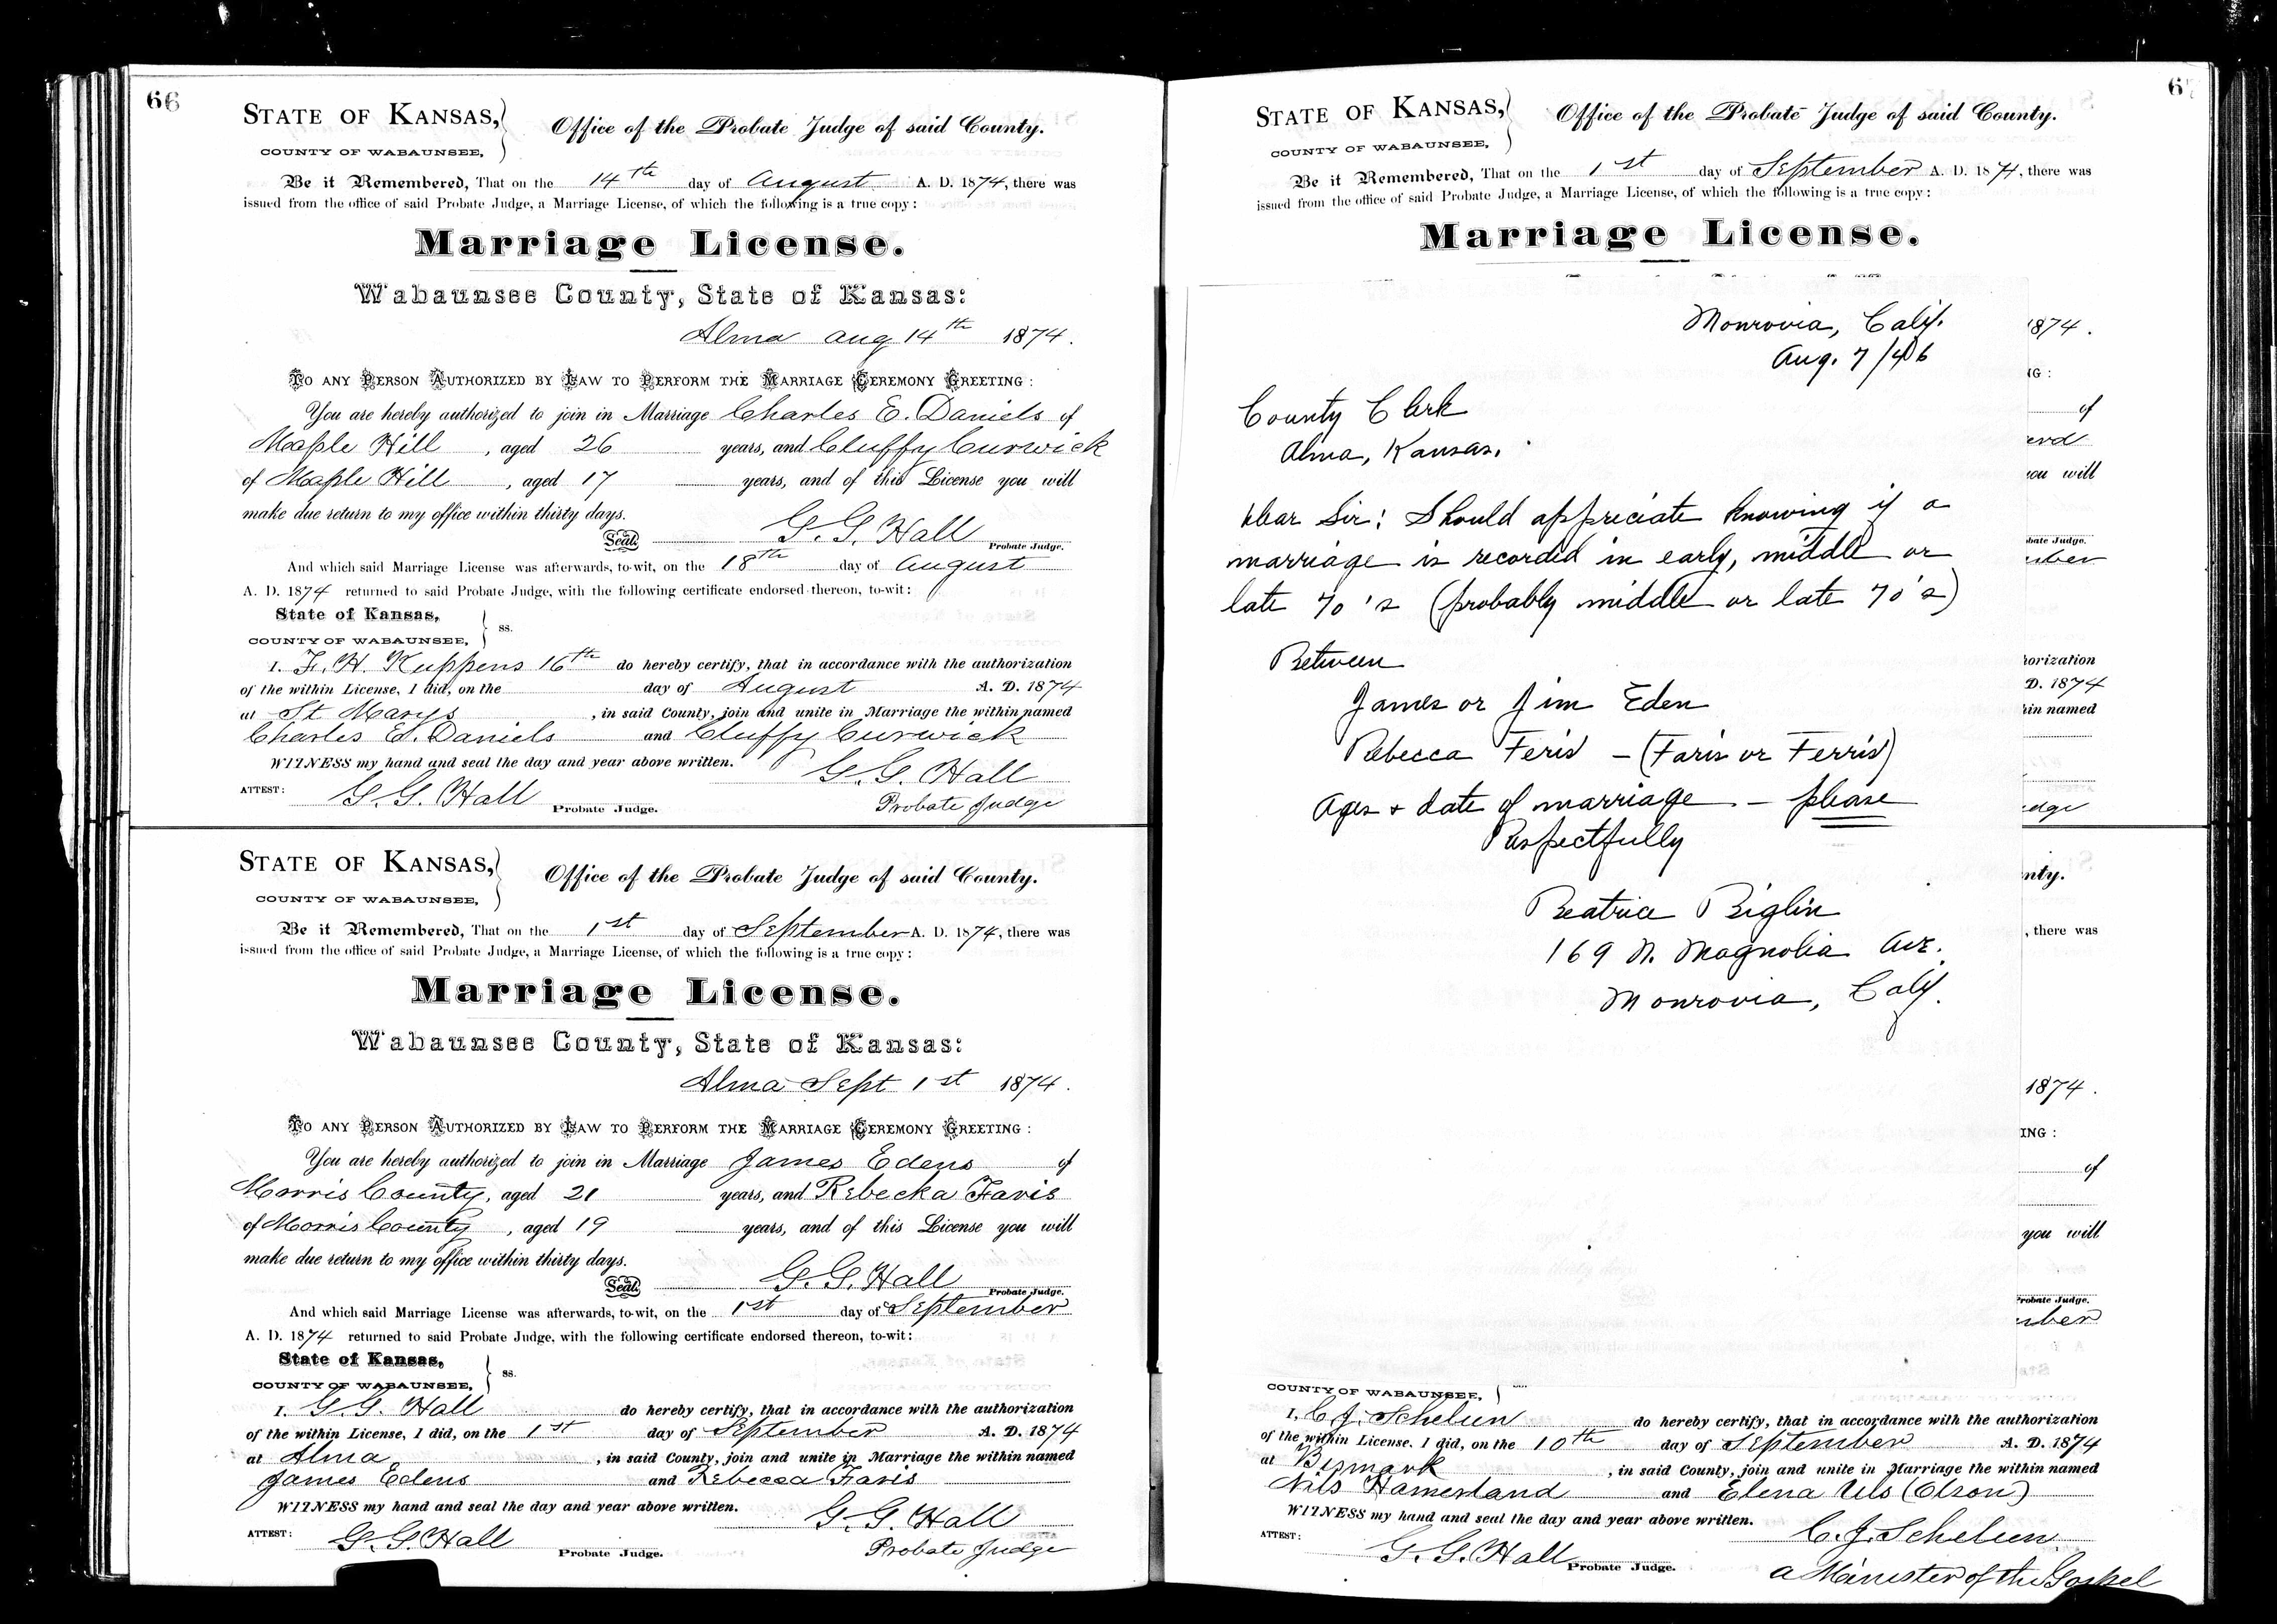 66
STATE OF KANSAS,
COUNTY OF WABAUNSEE,
Office of the Probate Judge of said County.
Be it Remembered, That on the 14th day of August A. D. 1874, there was
issued from the office of said Probate Judge, a Marriage License, of which the following is a true copy:
Marriage License.
Wabaunsee County, State of Kansas:
Alma Aug 14th 1874.
TO ANY PERSON AUTHORIZED BY LAW TO PERFORM THE MARRIAGE CEREMONY GREETING:
You are hereby authorized to join in Marriage Charles E. Daniels of
Maple Hill, aged 26 years, and Cluffy Curwick
of Maple Hill, aged 17 years, and of this License you will
make due return to my office within thirty days.
Seal. G. G. Hall
Probate Judge.
And which said Marriage License was afterwards, to-wit, on the 18th day of August
A. D. 1874 returned to said Probate Judge, with the following certificate endorsed thereon, to-wit:
State of Kansas,
COUNTY OF WABAUNSEE, ss.
I. F. H. Kuppens 16th do hereby certify, that in accordance with the authorization
of the within License, I did, on the day of August A. D. 1874
at St Marys, in said County, join and unite in Marriage the within named
Charles E. Daniels and Cluffy Curwick
WITNESS my hand and seal the day and year above written.
G. G. Hall
ATTEST: G. G. Hall Probate Judge. Probate Judge
STATE OF KANSAS,
COUNTY OF WABAUNSEE,
Office of the Probate Judge of said County.
Be it Remembered, That on the 1st day of September A. D. 1874, there was
issued from the office of said Probate Judge, a Marriage License, of which the following is a true copy:
Marriage License.
Wabaunsee County, State of Kansas:
Alma Sept 1st 1874.
TO ANY PERSON AUTHORIZED BY LAW TO PERFORM THE MARRIAGE CEREMONY GREETING:
You are hereby authorized to join in Marriage James Edens of
Morris County, aged 21 years, and Rebecka Faris
of Morris County, aged 19 years, and of this License you will
make due return to my office within thirty days.
Seal. G. G. Hall
Probate Judge.
And which said Marriage License was afterwards, to-wit, on the 1st day of September
A. D. 1874 returned to said Probate Judge, with the following certificate endorsed thereon, to-wit:
State of Kansas,
COUNTY OF WABAUNSEE, ss.
I. G. G. Hall do hereby certify, that in accordance with the authorization
of the within License, I did, on the 1st day of September A. D. 1874
at Alma, in said County, join and unite in Marriage the within named
James Edens and Rebecca Faris
WITNESS my hand and seal the day and year above written.
G. G. Hall
ATTEST: G. G. Hall Probate Judge. Probate Judge
STATE OF KANSAS,
COUNTY OF WABAUNSEE,
Office of the Probate Judge of said County.
Be it Remembered, That on the 1st day of September A. D. 1874, there was
issued from the office of said Probate Judge, a Marriage License, of which the following is a true copy:
Marriage License.
Monrovia, Calif.
Aug. 7/46
County Clerk
Alma, Kansas.
Dear Sir: Should appreciate knowing if a
marriage is recorded in early, middle or
late 70's (probably middle or late 70's)
Between
James or Jim Eden
Rebecca Feris - (Faris or Ferris)
Ages + date of marriage - please
Respectfully
Beatrice Biglin
169 N. Magnolia Ave.
Monrovia, Calif.
1874.
of
you will
Probate Judge.
horization
D. 1874
hin named
nty.
, there was
1874.
ING:
of
you will
Probate Judge.
COUNTY OF WABAUNSEE,
I, C. J. Schelin do hereby certify, that in accordance with the authorization
of the within License, I did, on the 10th day of September A. D. 1874
at Bismark, in said County, join and unite in Marriage the within named
Nils Hamerland and Elena Uls (Olson)
WITNESS my hand and seal the day and year above written.
C. J. Schelin
ATTEST: G. G. Hall Probate Judge. a Minister of the Gospel